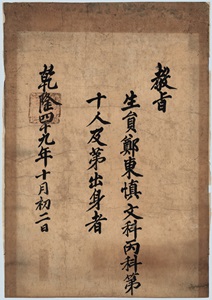 敎旨
生員鄭東愼文科丙科第
十人及第出身者
乾隆四十九年十月初二日